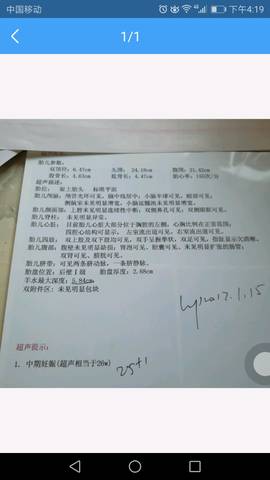 中国移动 4G 下午4:19
1/1
胎儿参数:
双顶径: 6.47cm 头围: 24.18cm 腹围: 21.62cm
股骨长: 4.63cm 肱骨长: 4.47cm 胎心率: 155次/分
超声描述:
胎位: 臀上胎头 标准平面
胎儿颅脑: 颅骨光环可见, 脑中线居中; 小脑半球可见, 眼眶可见;
侧脑室未见明显增宽, 小脑延髓池未见明显增宽。
胎儿颜面部: 上唇未见明显连续性中断; 双侧鼻孔可见; 双侧眼眶可见。
胎儿脊柱: 未见明显异常。
胎儿心脏: 目前胎儿心脏大部分位于胸腔的左侧, 心胸比例在正常范围;
四腔心结构可显示, 左室流出道可见, 右室流出道可见。
胎儿四肢: 双上肢及双下肢均可见, 双手呈握拳状, 双足可见, 指趾显示欠清晰。
胎儿腹部: 腹壁未见明显缺损; 胃泡可见, 胆囊可见, 未见明显扩张的肠管;
双肾可见, 膀胱可见。
胎儿脐带: 可见两条脐动脉, 一条脐静脉。
胎盘位置: 后壁 I 级 胎盘厚度: 2.68cm
羊水最大深度: 5.84cm
双附件区: 未见明显包块
2017.1.15
超声提示:
1. 中期妊娠(超声相当于26w)
25+1